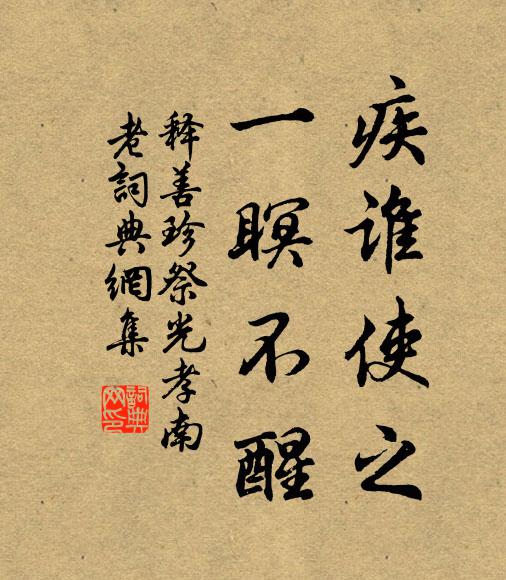 疾谁使之
一瞑不醒
释善珍祭光孝南
老詞典網集
詞典
网印